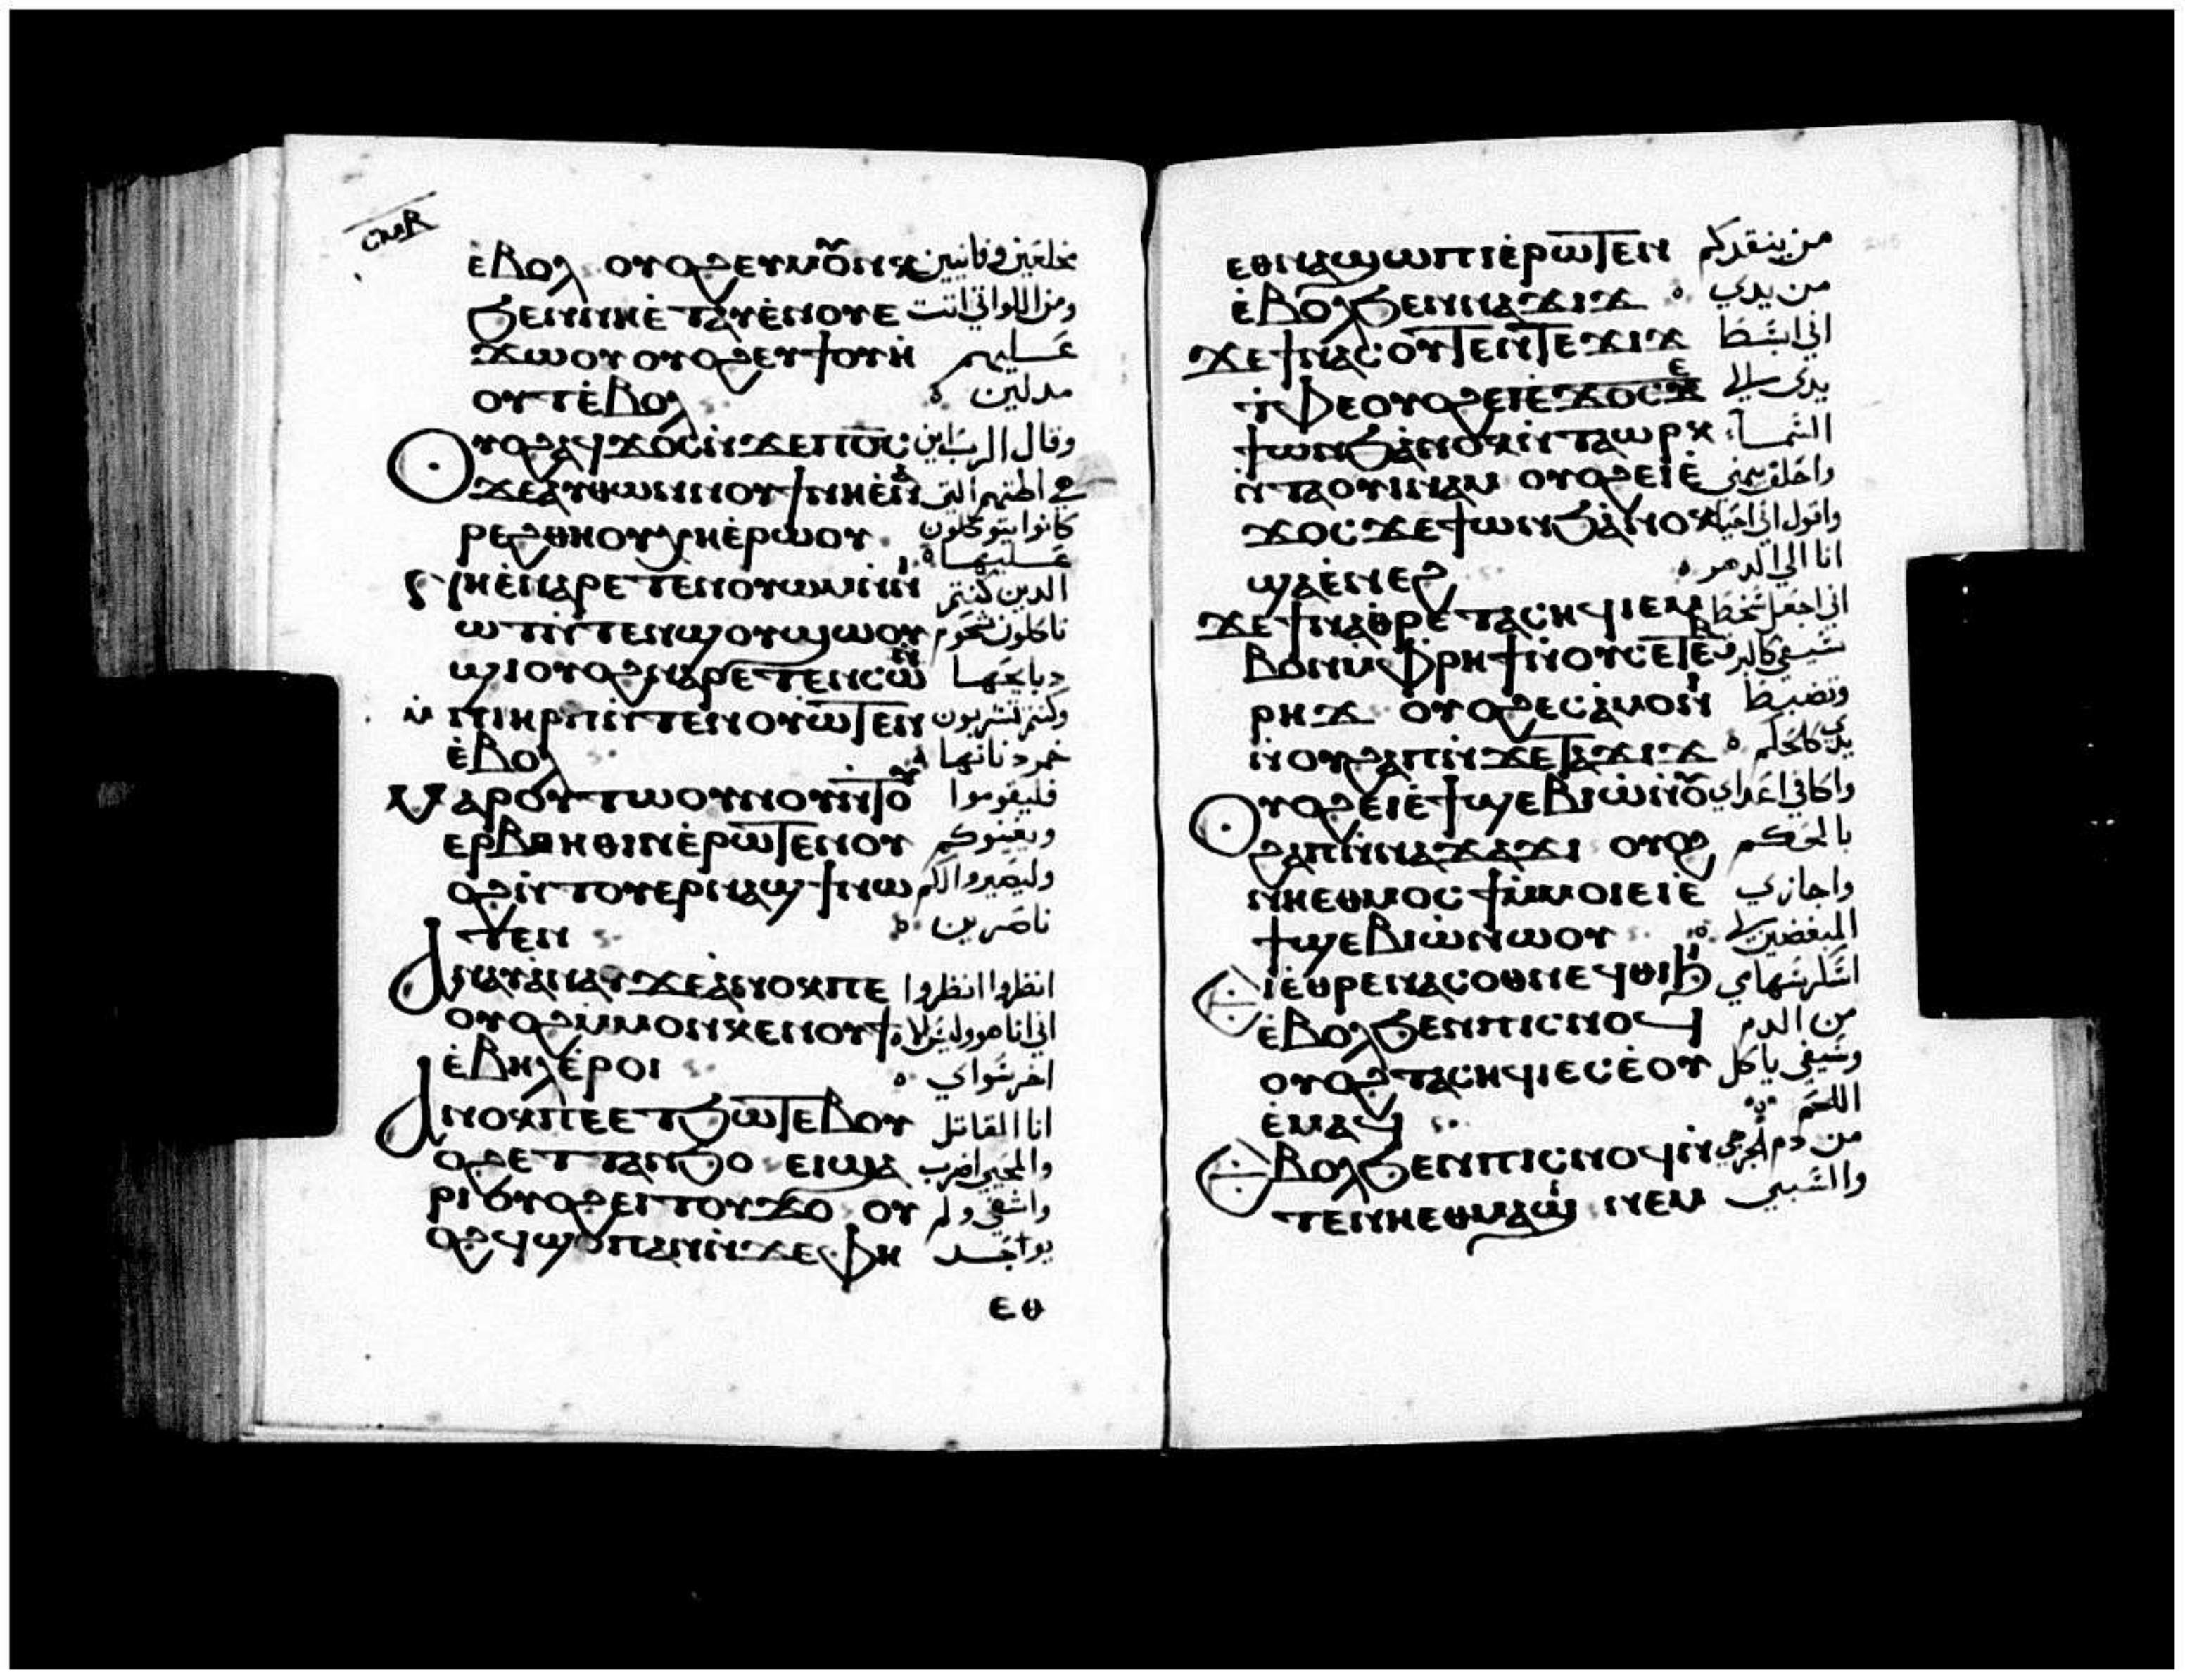 ⲥⲙⲃ
ⲉ̀ⲃⲟⲗ ⲟⲩⲟϩ ⲉⲩⲙⲟⲩⲛⲕ
ϧⲉⲛⲛⲏⲉ̀ⲧⲁⲩⲉ̀ⲛⲟⲩⲉ
ϫⲱⲟⲩ ⲟⲩⲟϩ ⲉⲩϯⲟⲩⲏ̀ عليهم
ⲟⲩⲧⲉ̀ⲃⲟⲗ مدلين
ⲟⲩⲟϩ ⲁϥϫⲟⲥⲛ̀ϫⲉⲡⲟⲥ وقال الرب اين
ϫⲉⲁⲩⲑⲱⲛⲛⲟⲩϯⲛⲏⲉ̀ⲛⲁ
ⲣⲉϩⲑⲏⲟⲩⲭⲏⲉ̀ⲣⲱⲟⲩ كانوا يتوكلون
عليها
ⲛⲏⲉ̀ⲛⲁⲣⲉⲧⲉⲛⲟⲩⲱⲙⲙ̀ⲡ̀ الدين كنتم
ⲱⲧⲛ̀ⲧⲉⲛϣⲟⲩϣⲱⲟⲩ تاكلون شحوم
ϣⲓⲟⲩⲟϩⲛⲁⲣⲉⲧⲉⲛⲥⲱ دبايحها
ⲙ̀ⲡⲓⲏⲣⲡⲛ̀ⲧⲉⲛⲟⲩⲱⲧⲉⲛ وكنتم تشربون
ⲉ̀ⲃⲟⲗ خمر
ⲙⲁⲣⲟⲩⲧⲱⲟⲩⲛⲟⲩⲛ̀ⲧⲟⲩ فليقوموا
ⲉⲣⲃⲟⲏⲑⲓⲛⲉ̀ⲣⲱⲧⲉⲛⲟⲩ ويعينوكم
ⲟϩⲛ̀ⲧⲟⲩⲉⲣⲛⲁϣϯⲛⲱ وليصيروا لكم
ⲧⲉⲛ ناصرين
ⲁⲛⲁⲩⲁ̀ⲛⲁⲩϫⲉⲁ̀ⲛⲟⲕⲡⲉ انظروا انظروا
ⲟⲩⲟϩⲙ̀ⲙⲟⲛⲕⲉⲛⲟⲩϯ
ⲉ̀ⲃⲏⲗⲉ̀ⲣⲟⲓ اخر سواي
ⲁⲛⲟⲕⲡⲉⲉⲧϧⲱⲧⲉⲃⲟⲩ انا القاتل
ⲟϩⲉⲧⲧⲁⲛϧⲟ ⲉⲓϣⲁ والمحيي اضرب
ⲣⲓⲟⲩⲟϩⲉⲓⲧⲟⲩϫⲟ ⲟⲩ واشفي ولم
ⲟϩϥϣⲟⲡⲁⲛⲛ̀ϫⲉⲫⲏ يواجد
ⲉⲑ
ⲉⲑⲛⲁϣⲱⲡⲓⲉ̀ⲣⲱⲧⲉⲛ من ينقدكم
ⲉ̀ⲃⲟⲗϧⲉⲛⲛⲁϫⲓϫ من يدي
ϫⲉϯⲛⲁⲥⲟⲩⲧⲉⲛⲧⲉϫⲓϫ اني ابسط
ⲛ̀ⲧⲫⲉⲟⲩⲟϩⲉⲓⲉ̀ϫⲟⲥϫⲉ يدى الى
ϯⲱⲛϧⲁ̀ⲛⲟⲕⲛ̀ⲧⲁⲱⲣⲕ السماء
ⲛ̀ⲧⲁⲟⲩⲓⲛⲁⲙ ⲟⲩⲟϩⲉⲓⲉ̀ واحلف بيميني
ϫⲟⲥϫⲉϯⲱⲛϧⲁ̀ⲛⲟⲕ واقول اني احيا
ϣⲁⲉ̀ⲛⲉϩ انا الي الدهر
ϫⲉϯⲛⲁⲑⲣⲉⲧⲁⲥⲏϥⲓⲉⲙ
ⲃⲟⲛⲙ̀ⲫⲣⲏϯⲛ̀ⲟⲩⲥⲉⲧⲉⲃ سيفي كالبرق
ⲣⲏϫ ⲟⲩⲟϩⲉⲥⲁ̀ⲙⲟⲛⲓ وتضبط
ⲛ̀ⲟⲩϩⲁⲡⲛ̀ϫⲉⲧⲁϫⲓϫ
ⲟⲩⲟϩⲉⲓⲉ̀ϯϣⲉⲃⲓⲱ̀ⲛ̀ⲟⲩ واكافي اعداي
ϩⲁⲡⲛ̀ⲛⲁϫⲁϫⲓ ⲟⲩⲟϩ بالحكم
ⲛⲏⲉⲑⲙⲟⲥϯⲙ̀ⲙⲟⲓⲉⲓⲉ̀ واجازي
ϯϣⲉⲃⲓⲱ̀ⲛⲱⲟⲩ المبغضين لي
ⲉⲓⲉ̀ⲑⲣⲉⲛⲁⲥⲟⲑⲛⲉϥⲑⲓϧⲓ اسكر سهامي
ⲉ̀ⲃⲟⲗϧⲉⲛⲡⲓⲥⲛⲟϥ من الدم
ⲟⲩⲟϩ ⲧⲁⲥⲏϥⲓⲉⲥⲉ̀ⲟⲩ وسيفي ياكل
ⲉ̀ⲙⲁϥ اللحم
ⲉⲃⲟⲗϧⲉⲛⲡⲓⲥⲛⲟϥⲛ̀ من دم الجرحي
ⲧⲉⲛⲏⲉⲑⲙⲁϣ ⲛⲉⲙ والسبي